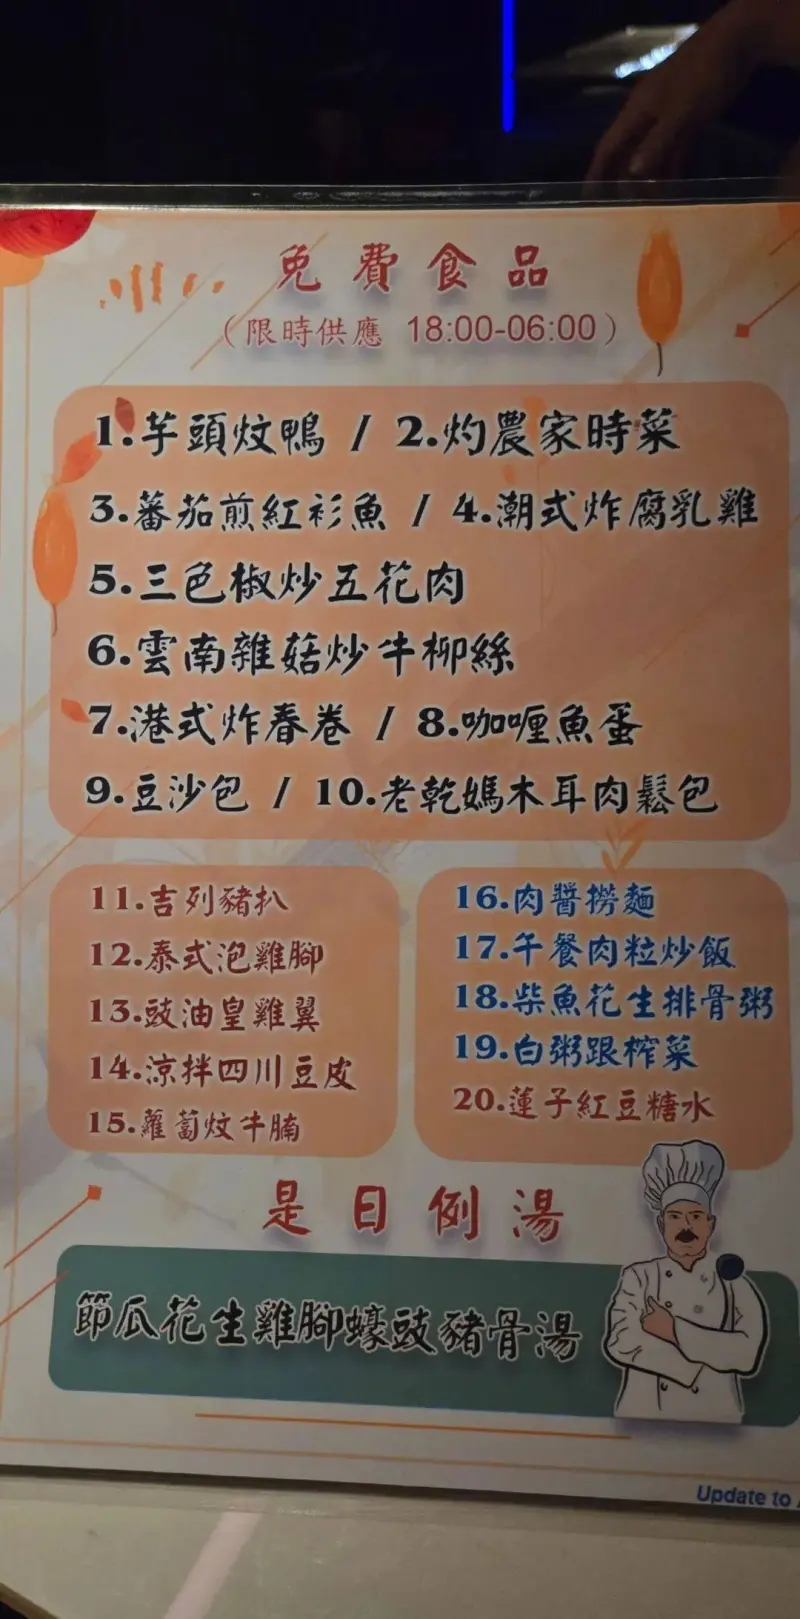 免費食品
（限時供應 18:00-06:00）
1.芋頭炆鴨 / 2.灼農家時菜
3.蕃茄煎紅衫魚 / 4.潮式炸腐乳雞
5.三色椒炒五花肉
6.雲南雜菇炒牛柳絲
7.港式炸春卷 / 8.咖喱魚蛋
9.豆沙包 / 10.老乾媽木耳肉鬆包
11.吉列豬扒
12.泰式泡雞腳
13.豉油皇雞翼
14.涼拌四川豆皮
15.蘿蔔炆牛腩
16.肉醬撈麵
17.午餐肉粒炒飯
18.柴魚花生排骨粥
19.白粥跟榨菜
20.蓮子紅豆糖水
是日例湯
節瓜花生雞腳蠔豉豬骨湯
Update to